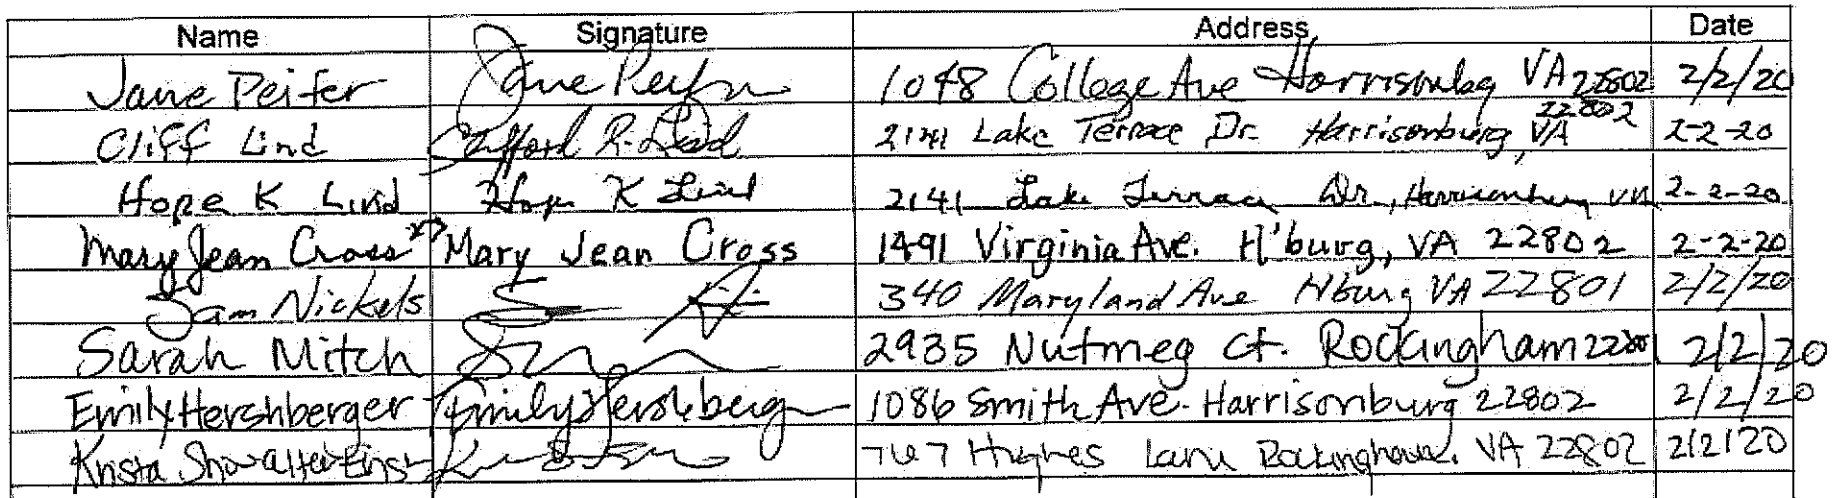 Name Signature Address Date
Jane Peifer Jane Peifer 1048 College Ave Harrisonbg VA 22802 2/2/20
Cliff Lind Clifford R. Lind 2141 Lake Terrace Dr. Harrisonburg, VA 22802 2-2-20
Hope K Lind Hope K Lind 2141 Lake Terrace Dr., Harrisonburg VA 2-2-20
Mary Jean Cross Mary Jean Cross 1491 Virginia Ave. H'burg, VA 22802 2-2-20
Sam Nickels 340 Maryland Ave Hburg VA 22801 2/2/20
Sarah Mitch 2935 Nutmeg Ct. Rockingham 2/2/20
Emily Hershberger Emily Hershberg 1086 Smith Ave. Harrisonburg 22802 2/2/20
Krista Showalter Hughes Lane Rockingham, VA 22802 2/2/20